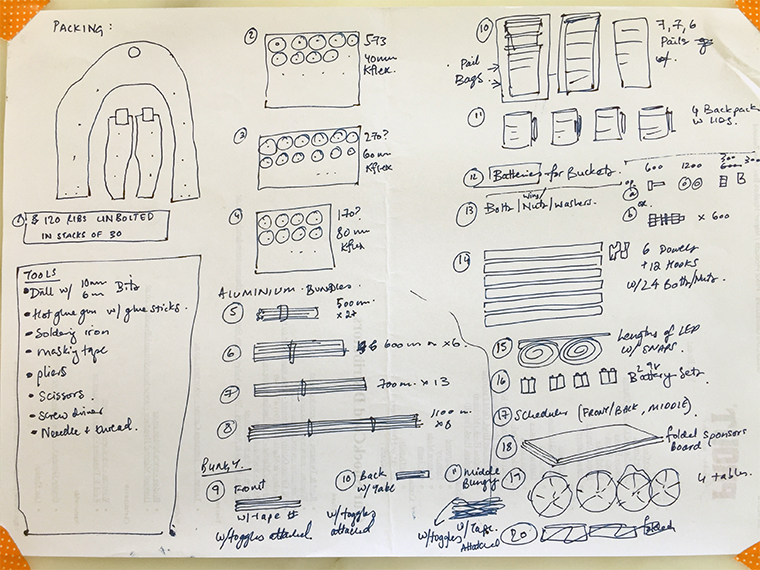 PACKING:
① 120 RIBS UNBOLTED
IN STACKS OF 30
TOOLS
• Drill w/ 10mm 6mm Bits
• Hot glue gun w/ glue sticks.
• Soldering iron
• masking tape
• pliers
• Scissors.
• Screw driver
• Needle + thread.
②
573
40mm
Kflex.
③
270?
60mm
Kflex
④
170?
80mm
Kflex
ALUMINIUM BUNDLES
⑤
500m
x 27
⑥
600m x 6.
⑦
700m x 13
⑧
1100m
x 6
BUNGY.
⑨ Front
w/ Tape
w/ toggles attached
⑩ Back
w/ Tape
w/ toggles
attached
Middle
Bungy
w/ Tape
w/ toggles Attached
⑩
7, 7, 6
Pails
Pail
Bags
⑪
4 Backpack
w LIDS.
⑫ Batteries for Buckets
600 1200
⑬ Bolts/Wing/Nuts/Washers.
a
b x 600
⑭
6 Dowels
+ 12 HOOKS
w/ 24 Bolts/Nuts
⑮
Lengths of LED
w/ SNAPS.
⑯
2 9V
Battery Sets
⑰ Schedules (FRONT/BACK, MIDDLE).
⑱
folded sponsors
Board
⑲
4 tables.
⑳